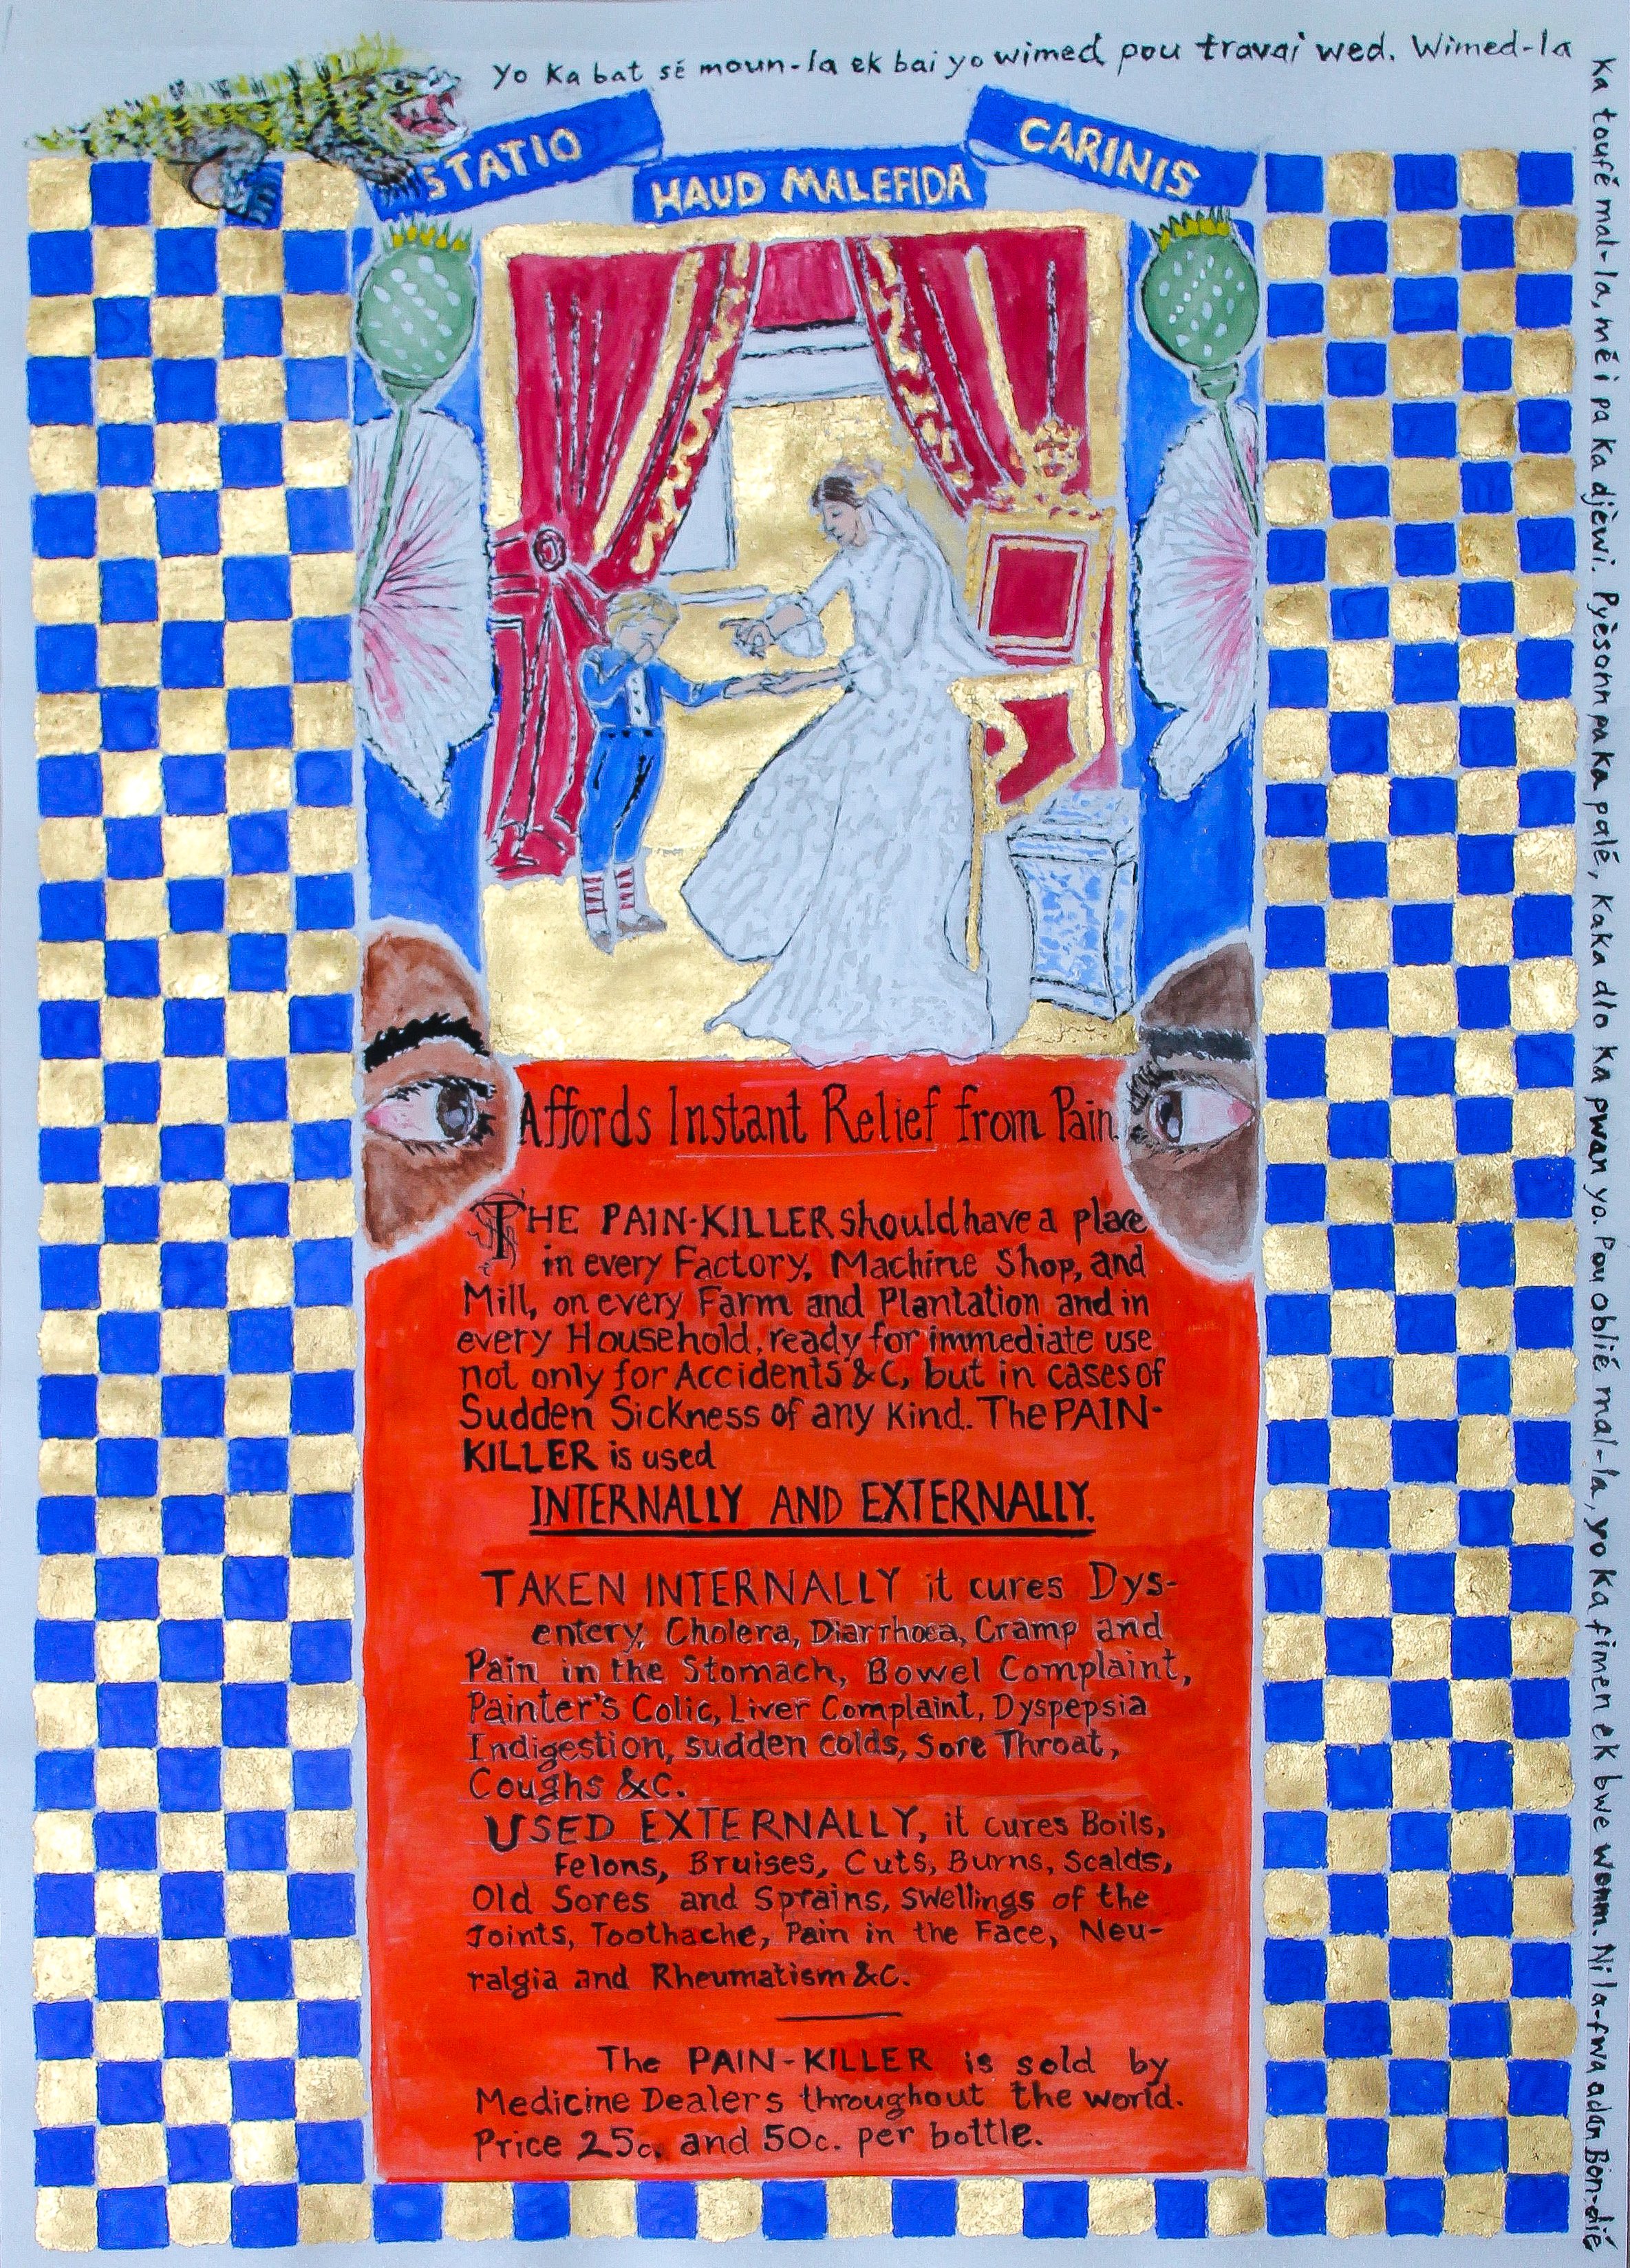 Yo Ka bat sé moun-la ek bai yo wimed pou travai wed. Wimed-la
Ka toufé mal-la, mé i pa Ka djéwi. Pyèsonn pa ka palé, Kaka dlo Ka pwan yo. Pou oblié mal-la, yo Ka fimen ek bwe wonm. Ni la-fwa adan Bon-dié
STATIO
HAUD MALEFIDA
CARINIS
Affords Instant Relief from Pain.
THE PAIN-KILLER should have a place
in every Factory, Machine Shop, and
Mill, on every Farm and Plantation and in
every Household, ready for immediate use
not only for Accidents &C, but in cases of
Sudden Sickness of any Kind. The PAIN-
KILLER is used
INTERNALLY AND EXTERNALLY.
TAKEN INTERNALLY it cures Dys-
entery, Cholera, Diarrhoea, Cramp and
Pain in the Stomach, Bowel Complaint,
Painter's Colic, Liver Complaint, Dyspepsia
Indigestion, sudden colds, Sore Throat,
Coughs &C.
USED EXTERNALLY, it cures Boils,
Felons, Bruises, Cuts, Burns, Scalds,
Old Sores and Sprains, Swellings of the
Joints, Toothache, Pain in the Face, Neu-
ralgia and Rheumatism &C.
The PAIN-KILLER is sold by
Medicine Dealers throughout the world.
Price 25c. and 50c. per bottle.